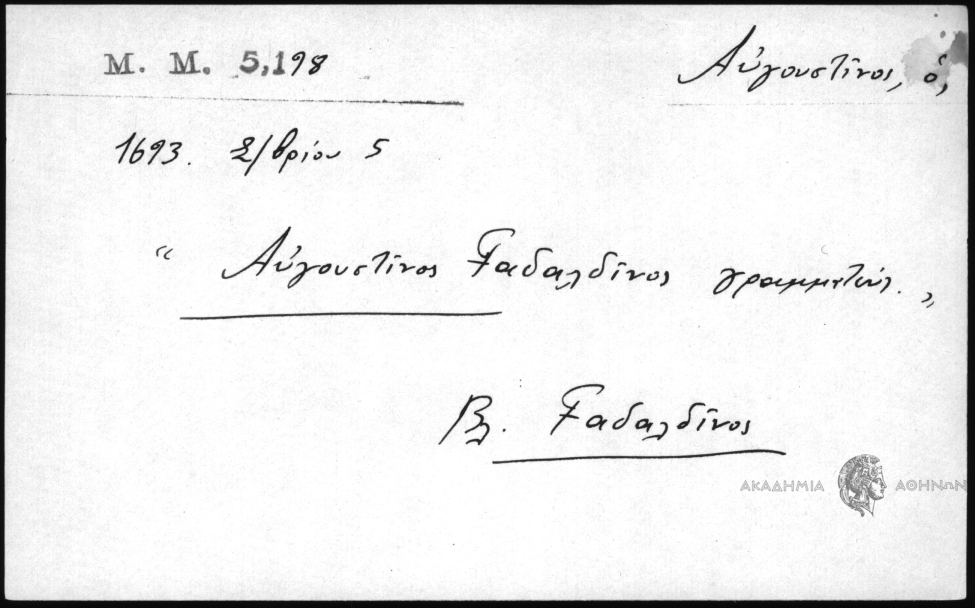 Μ. Μ. 5,198
Αὐγουστῖνος, ὁ,
1693. Σ/βρίου 5
“ Αὐγουστῖνος Γαδαλδῖνος γραμματεύς. „
Βλ. Γαδαλδῖνος
ΑΚΑΔΗΜΙΑ ΑΘΗΝΩΝ